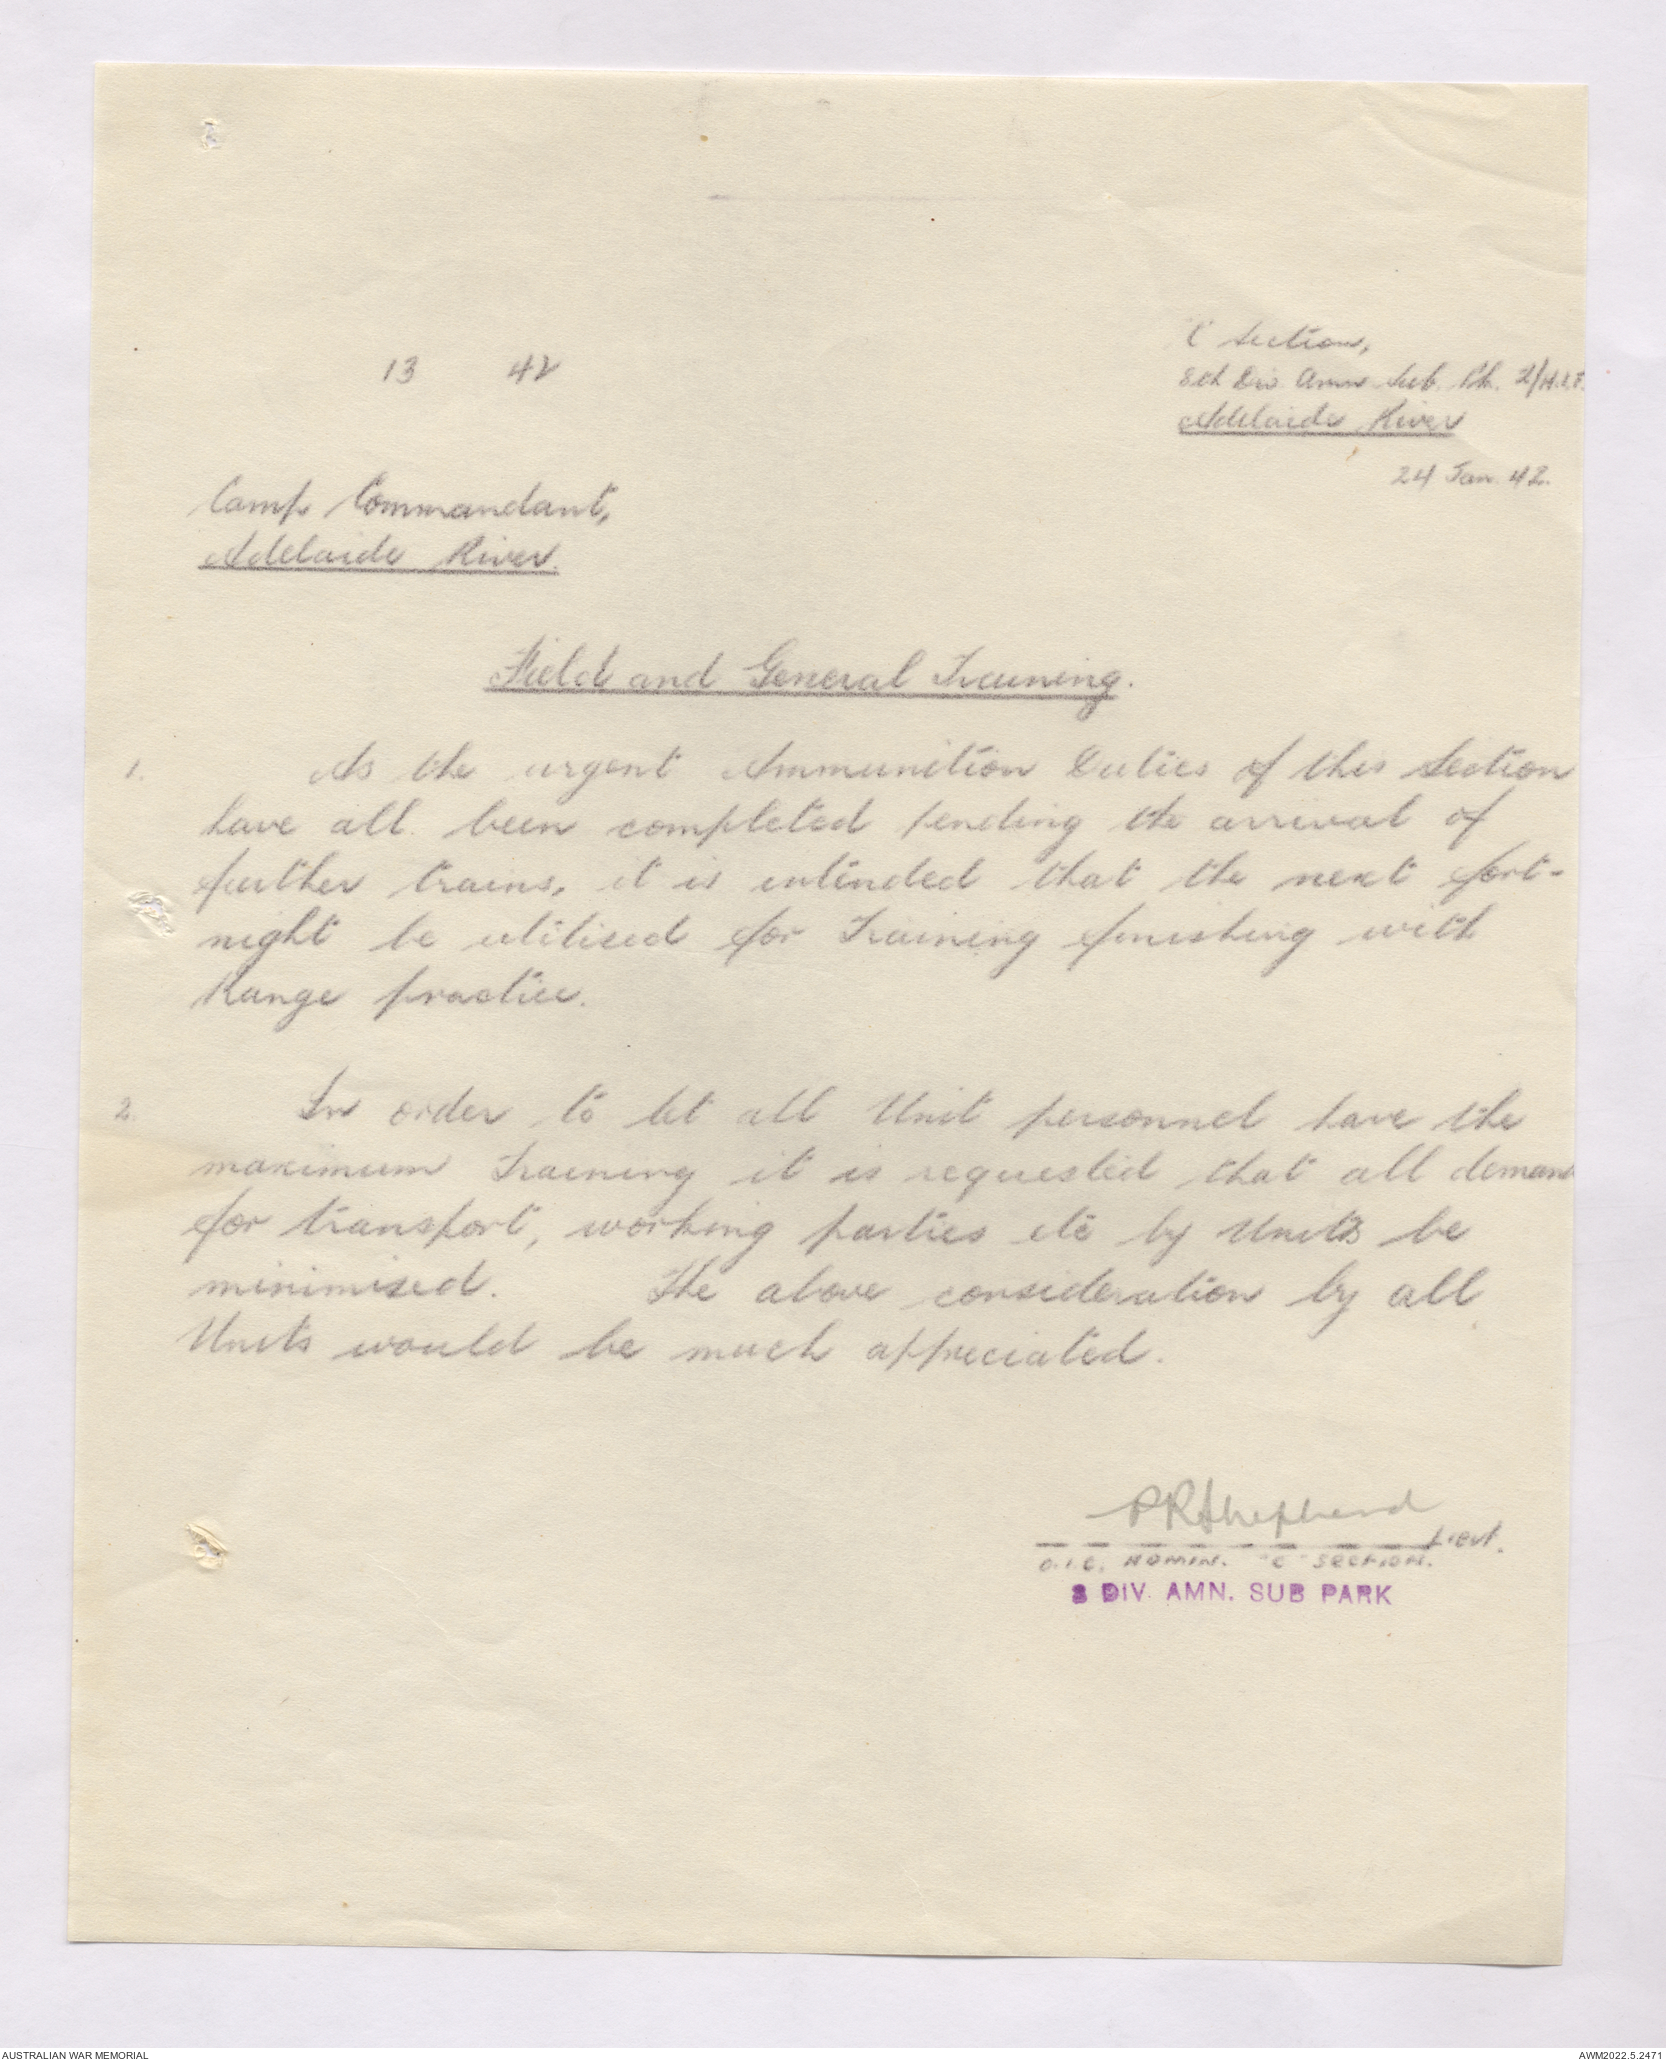 13 42
"C Section,
8th Div Amn Sub. Pk. 2/A.I.F.
Adelaide River
24 Jan. 42.
Camp Commandant,
Adelaide River.
Field and General Training.
1. As the urgent Ammunition Duties of this Section
have all been completed pending the arrival of
further trains, it is intended that the next fort-
night be utilised for Training finishing with
Range practice.
2. In order to let all Unit personnel have the
maximum Training it is requested that all demand
for transport, working parties etc by Units be
minimised. The above consideration by all
Units would be much appreciated.
PRShepherd
Lieut.
O.I.C. ADMIN. "C" SECTION.
8 DIV. AMN. SUB PARK
AUSTRALIAN WAR MEMORIAL
AWM2022.5.2471